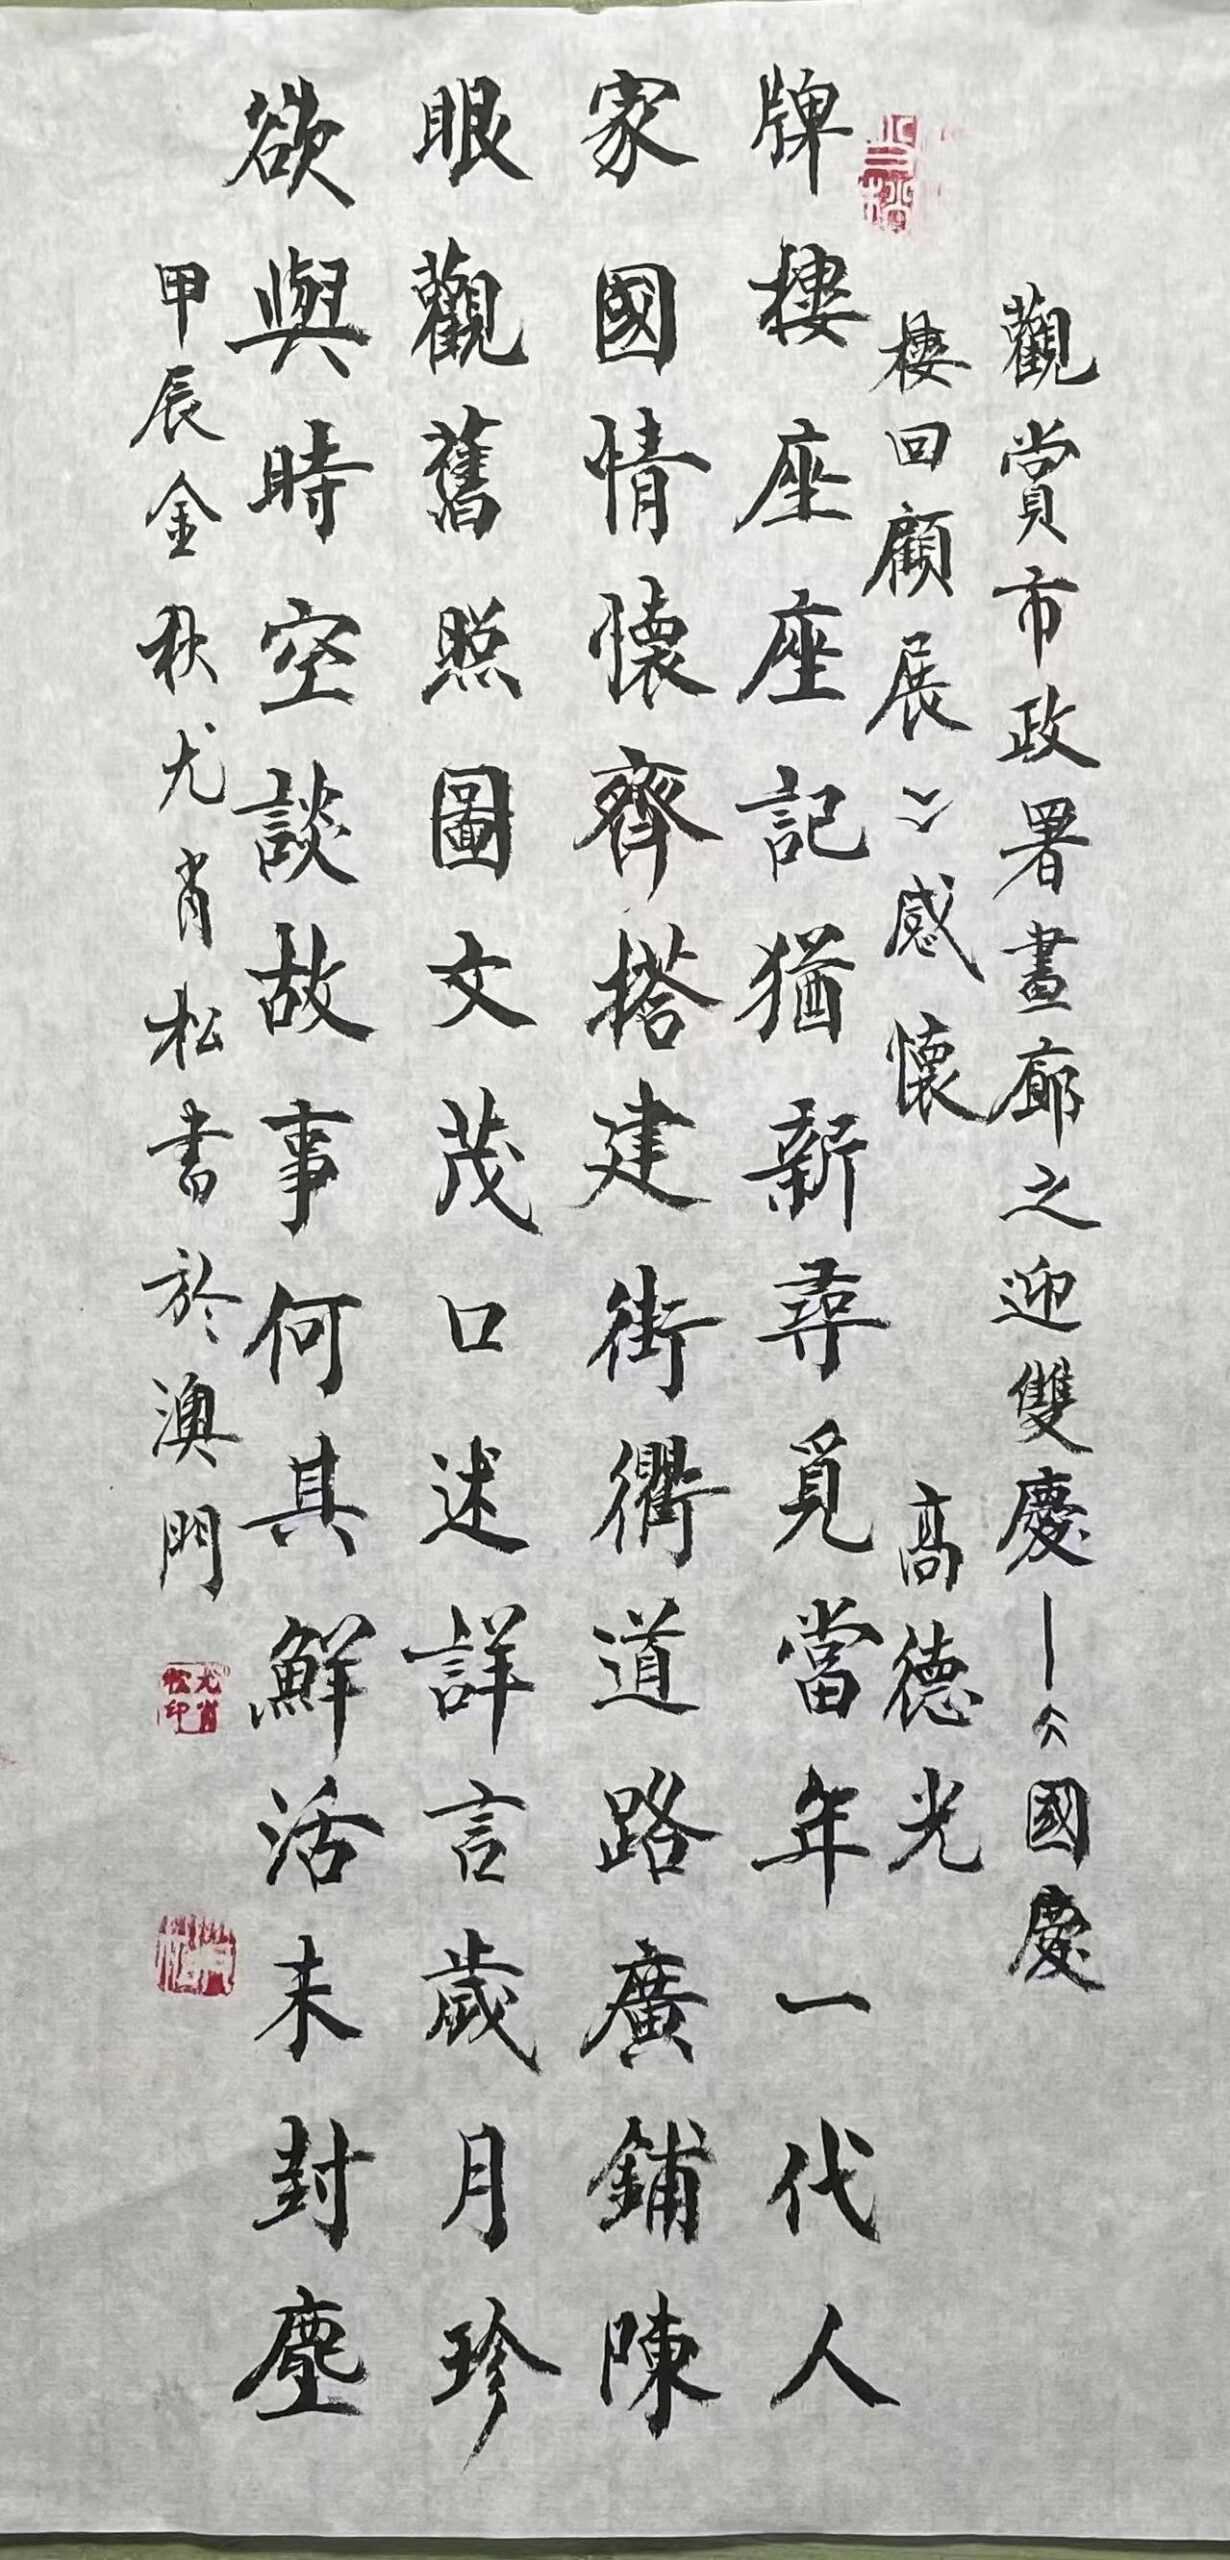 觀賞市政署畫廊之迎雙慶—《國慶
樓回顧展》感懷 高德光
牌樓座座記猶新尋覓當年一代人
家國情懷齊搭建街衢道路廣鋪陳
眼觀舊照圖文茂口述詳言歲月珍
欲與時空談故事何其鮮活未封塵
甲辰金秋尤肖松書於澳門
尤肖松印